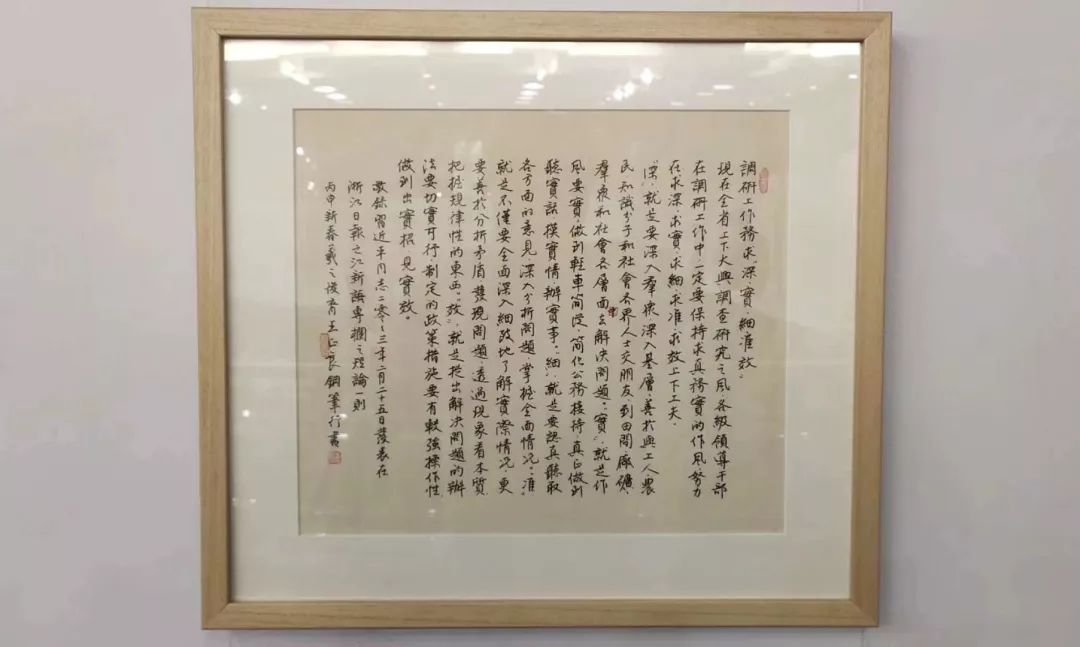 調研工作務求“深、實、細、準、效”
現在全省上下大興調查研究之風，各級領導干部
在調研工作中，一定要保持求真務實的作風，努力
在求深、求實、求細、求准、求效上下工夫。
“深”，就是要深入羣衆，深入基層，善於與工人、農
民、知識分子和社會各界人士交朋友，到田間、廠礦、
羣衆和社會各層面去解決問題。“實”，就是作
風要實，做到輕車簡從，簡化公務接待，真正做到
聽實話、摸實情、辦實事。“細”，就是要認真聽取
各方面的意見，深入分析問題，掌握全面情況。“准”，
就是不僅要全面深入細致地了解實際情況，更
要善於分析矛盾、發現問題，透過現象看本質，
把握規律性的東西。“效”，就是提出解決問題的辦
法要切實可行，制定的政策措施要有較強操作性，
做到出實招、見實效。
敬錄習近平同志二零〇三年二月二十五日發表在
浙江日報之江新語專欄之理論一則
丙申新春羲之後裔王正良鋼筆行書